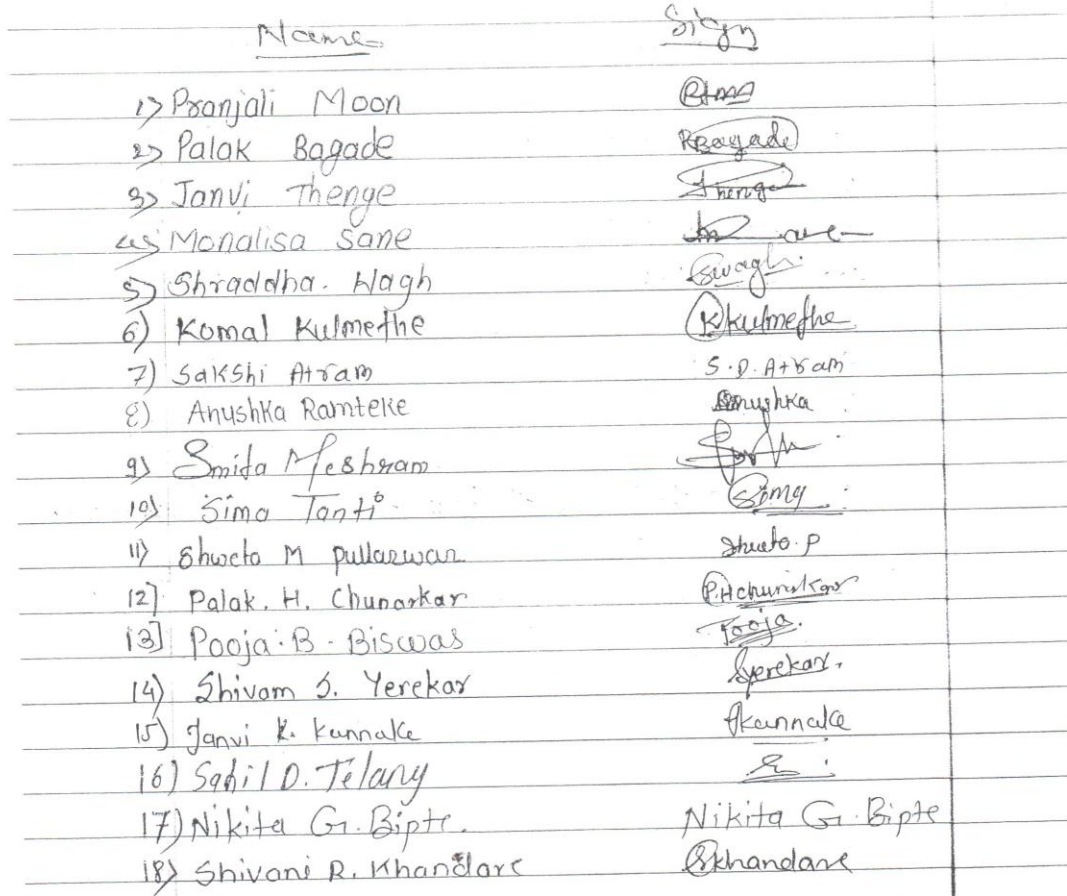 Name Sign
1) Pranjali Moon
2) Palak Bagade RBagade
3) Janvi Thenge Thenge
4) Monalisa Sane
5) Shraddha. Wagh Swagh.
6) Komal Kulmethe K kulmethe
7) Sakshi Atram S.D. Atram
8) Anushka Ramteke Anushka
9) Smita Meshram
10) Sima Tanti Sima
11) Shweta M pullarwar Shweta.P
12] Palak. H. Chunarkar P.H chunarkar
13] Pooja.B - Biswas Pooja.
14) Shivam S. Yerekar Syerekar.
15) Janvi k. kannake Jkannake
16) Sahil D. Telang
17) Nikita G. Bipte. Nikita G. Bipte
18) Shivani R. Khandare Skhandare